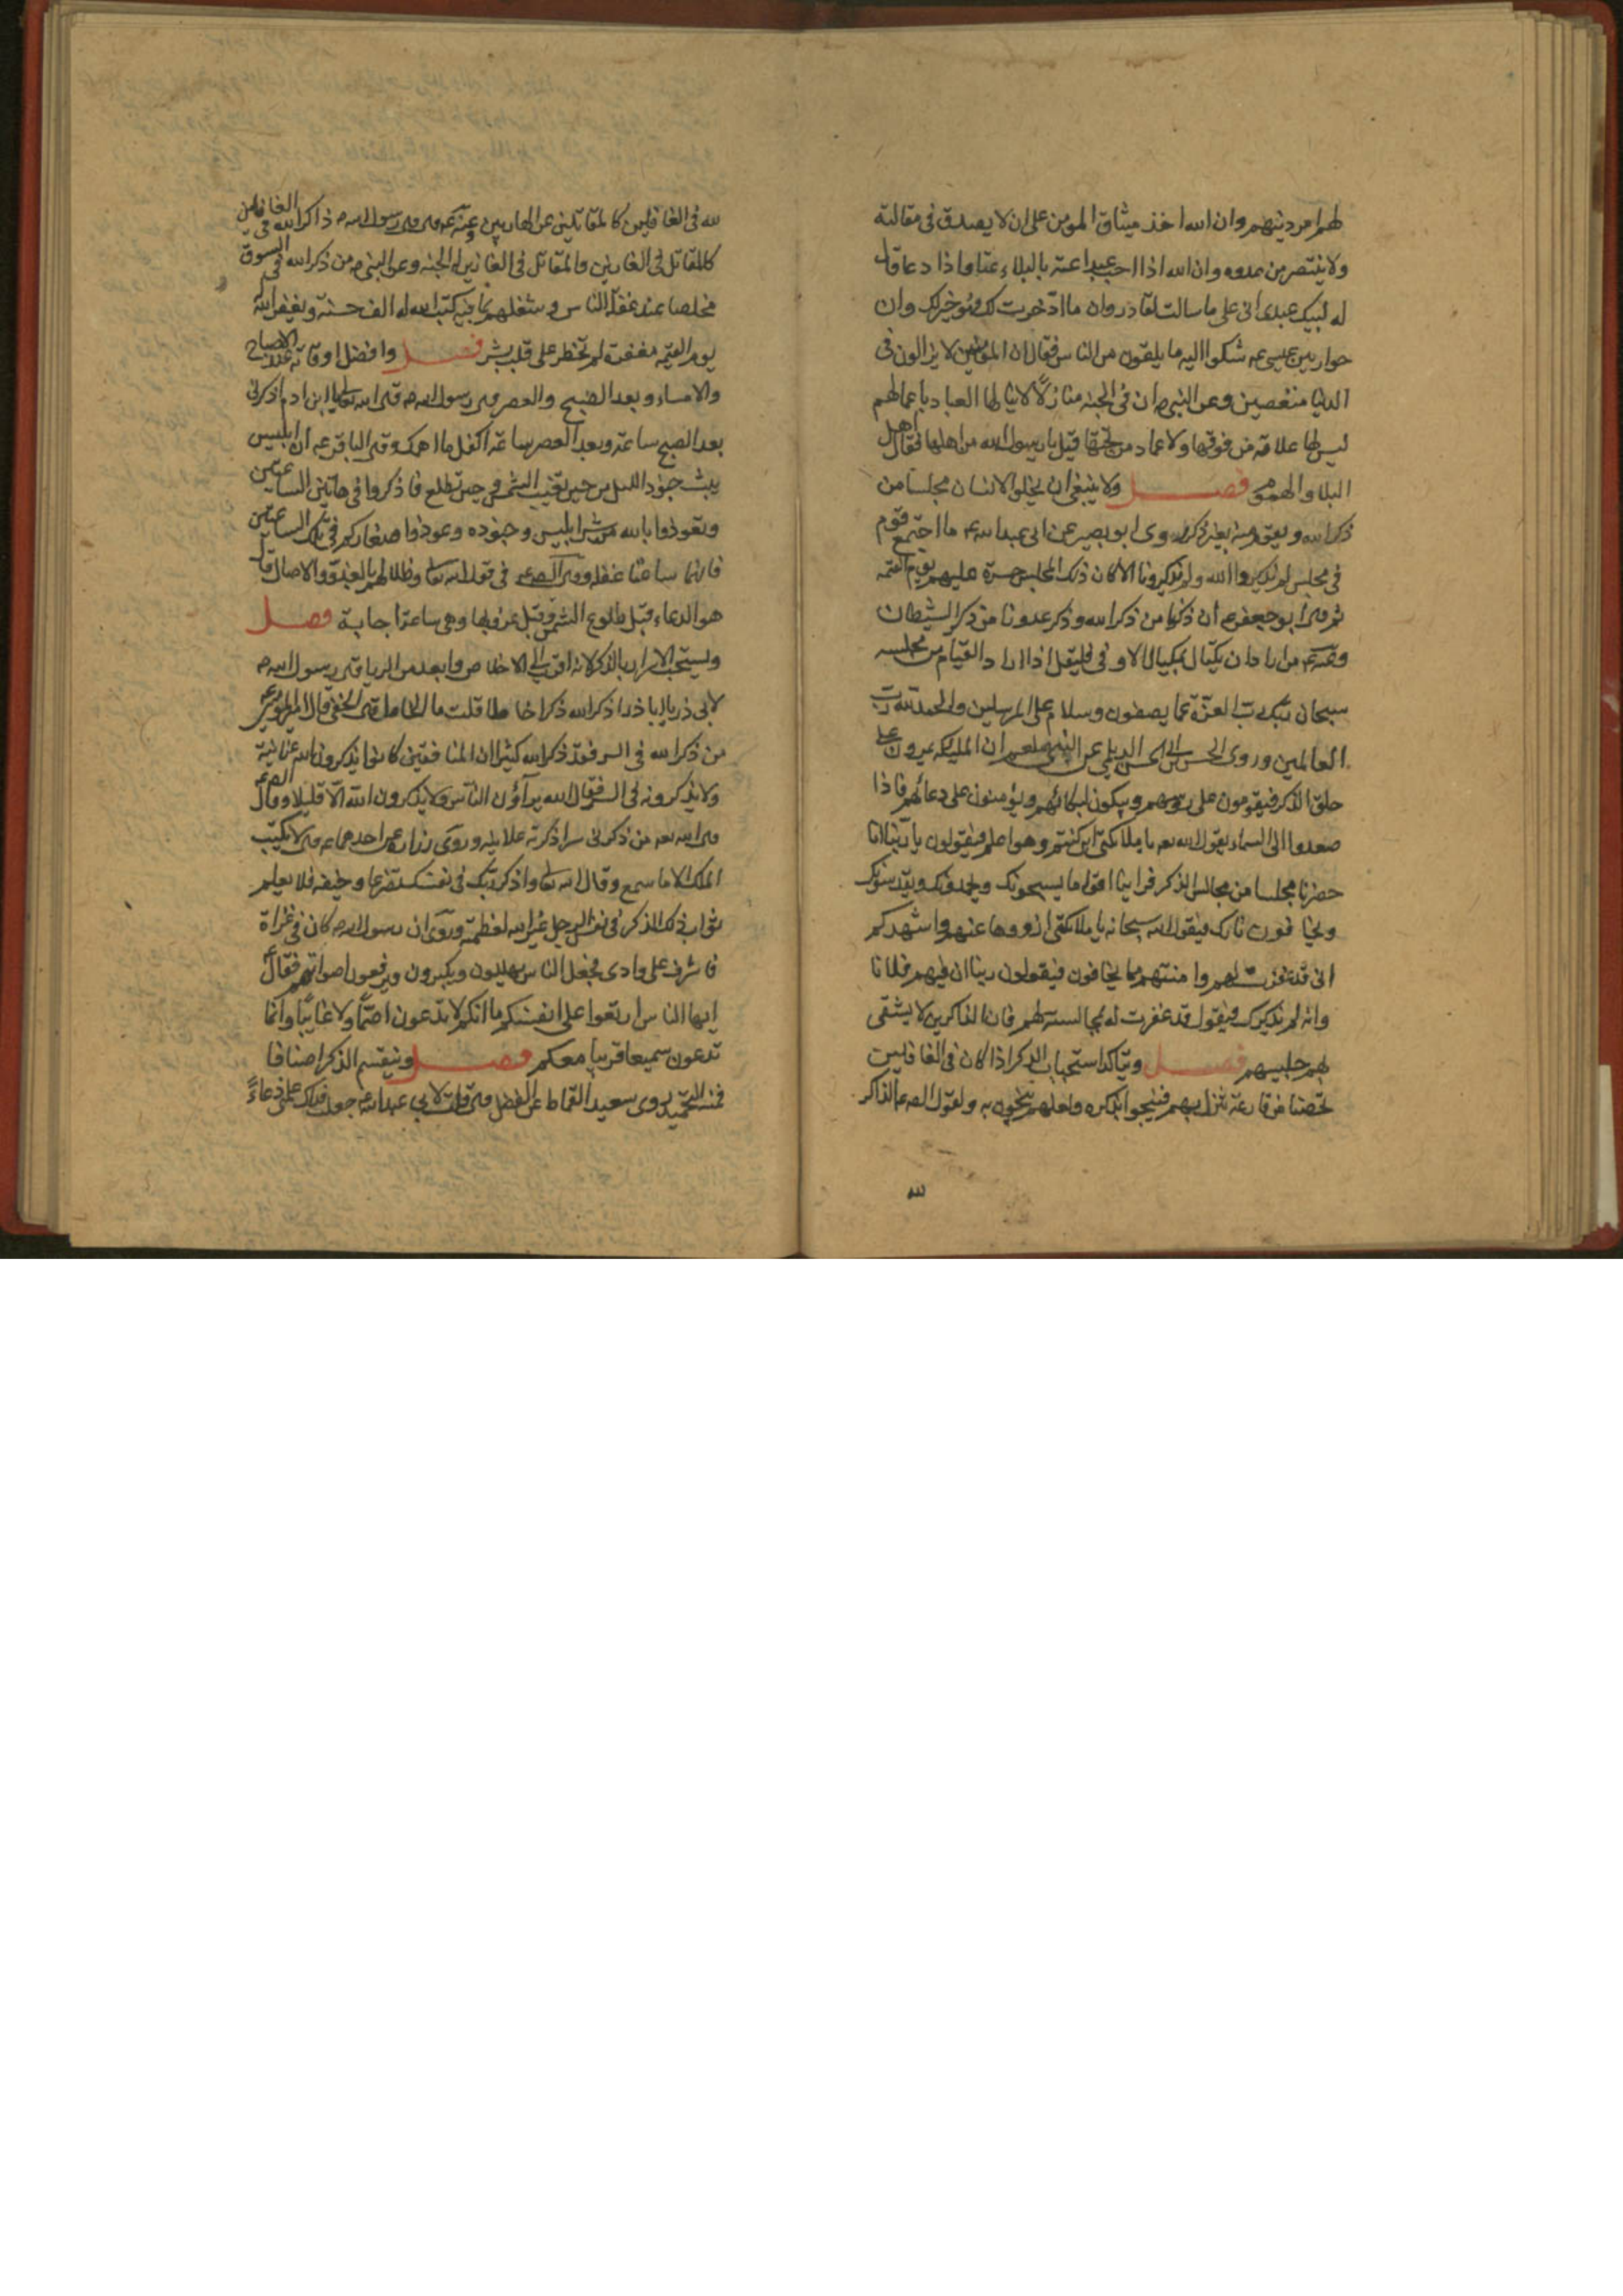 لهم امر دينهم وان الله اخذ ميثاق المومن على ان لا يصدق فى مقالته
ولا ينتصر من عدوه وان الله اذا احب عبدا غته بالبلاء غتا فاذا دعا قال
له لبيك عبدى انى على ما سالت لقادر وان ما ادخرت لك فهو خير لك وان
حواريين عيسى عه شكوا اليه ما يلقون من الناس فقال ان المؤمنين لا يزالون فى
الدنيا منغصين وعن النبى ص ان فى الجنه منازلا لا ينالها العباد باعمالهم
ليس لها علاقة من فوقها ولا عماد من تحتها قيل يا رسول الله من اهلها فقال اهل
البلا والهموم فصل ولا ينبغى ان يخلو الانسان مجلسا من
ذكر الله ويقوم منه بغير ذكر الله روى ابو بصير عن ابى عبد الله ع ما اجتمع قوم
فى مجلس لم يذكروا الله ولم يذكرونا الا كان ذلك المجلس حسرة عليهم يوم القيمه
ثم قال ابو جعفر ع ان ذكرنا من ذكر الله وذكر عدونا من ذكر الشيطان
وعنه ع من اراد ان يكتال بمكيال الاوفى فليقل اذا اراد القيام من مجلسه
سبحان ربك رب العزة عما يصفون وسلام على المرسلين والحمد لله رب
العالمين وروى الحسن بن ابى الحسن الديلمى عن النبى صلعم ان المليكه يمرون على
حلق الذكر فيقومون على رؤسهم ويبكون لبكائهم ويؤمنون على دعائهم فاذا
صعدوا الى السماء يقول الله تعه يا ملائكتى اين كنتم وهو اعلم فيقولون يا ربنا انا
حضرنا مجلسا من مجالس الذكر فراينا اقواما يسبحونك ويحمدونك ويقدسونك
ويخافون نارك فيقول الله سبحانه يا ملائكتى ازووها عنهم واشهدكم
انى قد غفرت لهم وامنتهم مما يخافون فيقولون ربنا ان فيهم فلانا
وانه لم يذكرك فيقول قد غفرت له بمجالسته لهم فان الذاكرين لا يشقى
بهم جليسهم فصل ويتاكد استحباب الذكر اذا كان فى الغافلين
تحصنا من قارعة تنزل بهم فينجو بذكره ولعلهم ينجون به ولقول الصه ع الذاكر
لله
لله فى الغافلين كالمقاتلين عن الهاربين وعنه ع قال قال رسول الله ص ذاكر الله فى الغافلين
كالمقاتل فى الفارين والمقاتل فى الفارين له الجنه وعن النبى ص من ذكر الله فى السوق
مخلصا عند غفلة الناس وشغلهم بما فيه كتب الله له الف حسنة ويغفر الله له
يوم القيمه مغفرة لم تخطر على قلب بشر فصل وافضل اوقاته عند الاصباح
والامساء وبعد الصبح والعصر قال رسول الله ص قال الله تعالى يا ابن ادم اذكرنى
بعد الصبح ساعة وبعد العصر ساعة اكفك ما اهمك وقال الباقر عه ان ابليس
يبث جنود الليل من حين تغيب الشمس وحين تطلع فاذكروا فى هاتين الساعتين
وتعوذوا بالله من شر ابليس وجنوده وعوذوا صغاركم فى تلك الساعتين
فانها ساعتا غفله وقال الصه ع فى قوله تعالى وظلالهم بالغدو والاصال قال
هو الدعاء قبل طلوع الشمس وقبل غروبها وهى ساعة اجابة فصل
ويستحب الاسرار بالذكر لانه اقرب الى الاخلاص وابعد من الريا قال رسول الله ص
لابى ذر يا ابا ذر اذكر الله ذكرا خاملا قلت ما الخامل قال الخفى قال امير المؤمنين ع
من ذكر الله فى السر فقد ذكر الله كثيرا ان المنافقين كانوا يذكرون الله علانية
ولا يذكرونه فى السر فقال الله يراؤن الناس ولا يذكرون الله الا قليلا وقال الصه ع
قال الله تعه من ذكرنى سرا ذكرته علانيه وروى زراره عن احدهما ع قال لا يكتب
الملك الا ما سمع وقال الله تعالى واذكر ربك فى نفسك تضرعا وخيفه فلا يعلم
ثواب ذلك الذكر فى نفس الرجل غير الله لعظمته وروى ان رسول الله ص كان فى غزاة
فاشرف على وادى فجعل الناس يهللون ويكبرون ويرفعون اصواتهم فقال
ايها الناس اربعوا على انفسكم اما انكم لا تدعون اصما ولا غائبا وانما
تدعون سميعا قريبا معكم فصل وينقسم الذكر اصنافا
فمنه التحميد روى سعيد القماط عن الفضل قال قلت لابى عبد الله ع جعلت فداك علمنى دعاء